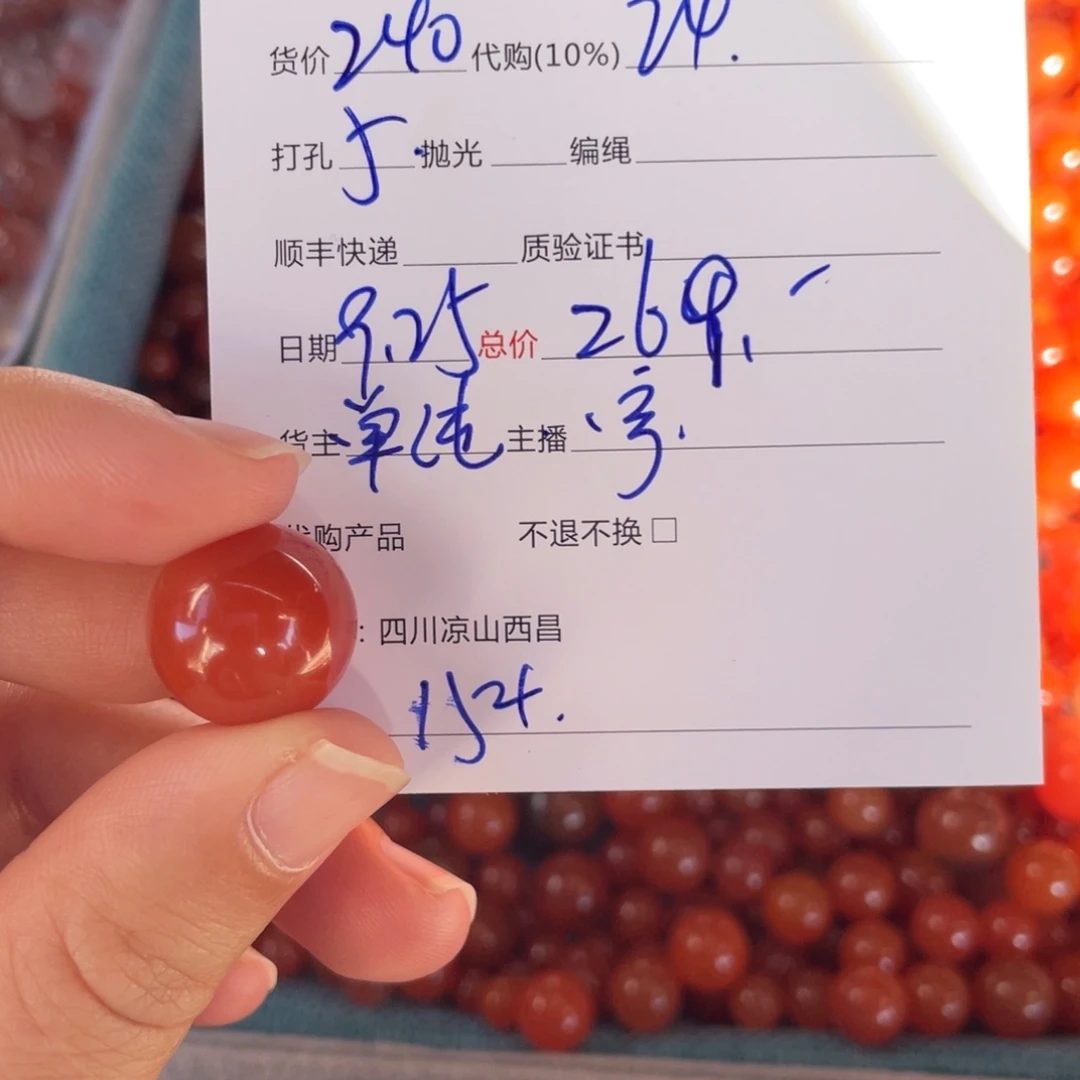 货价 240 代购(10%) 24.
打孔 5 抛光 编绳
顺丰快递 质验证书
日期 9.25 总价 269.
货主 单 主播
代购产品 不退不换 □
: 四川凉山西昌
154.